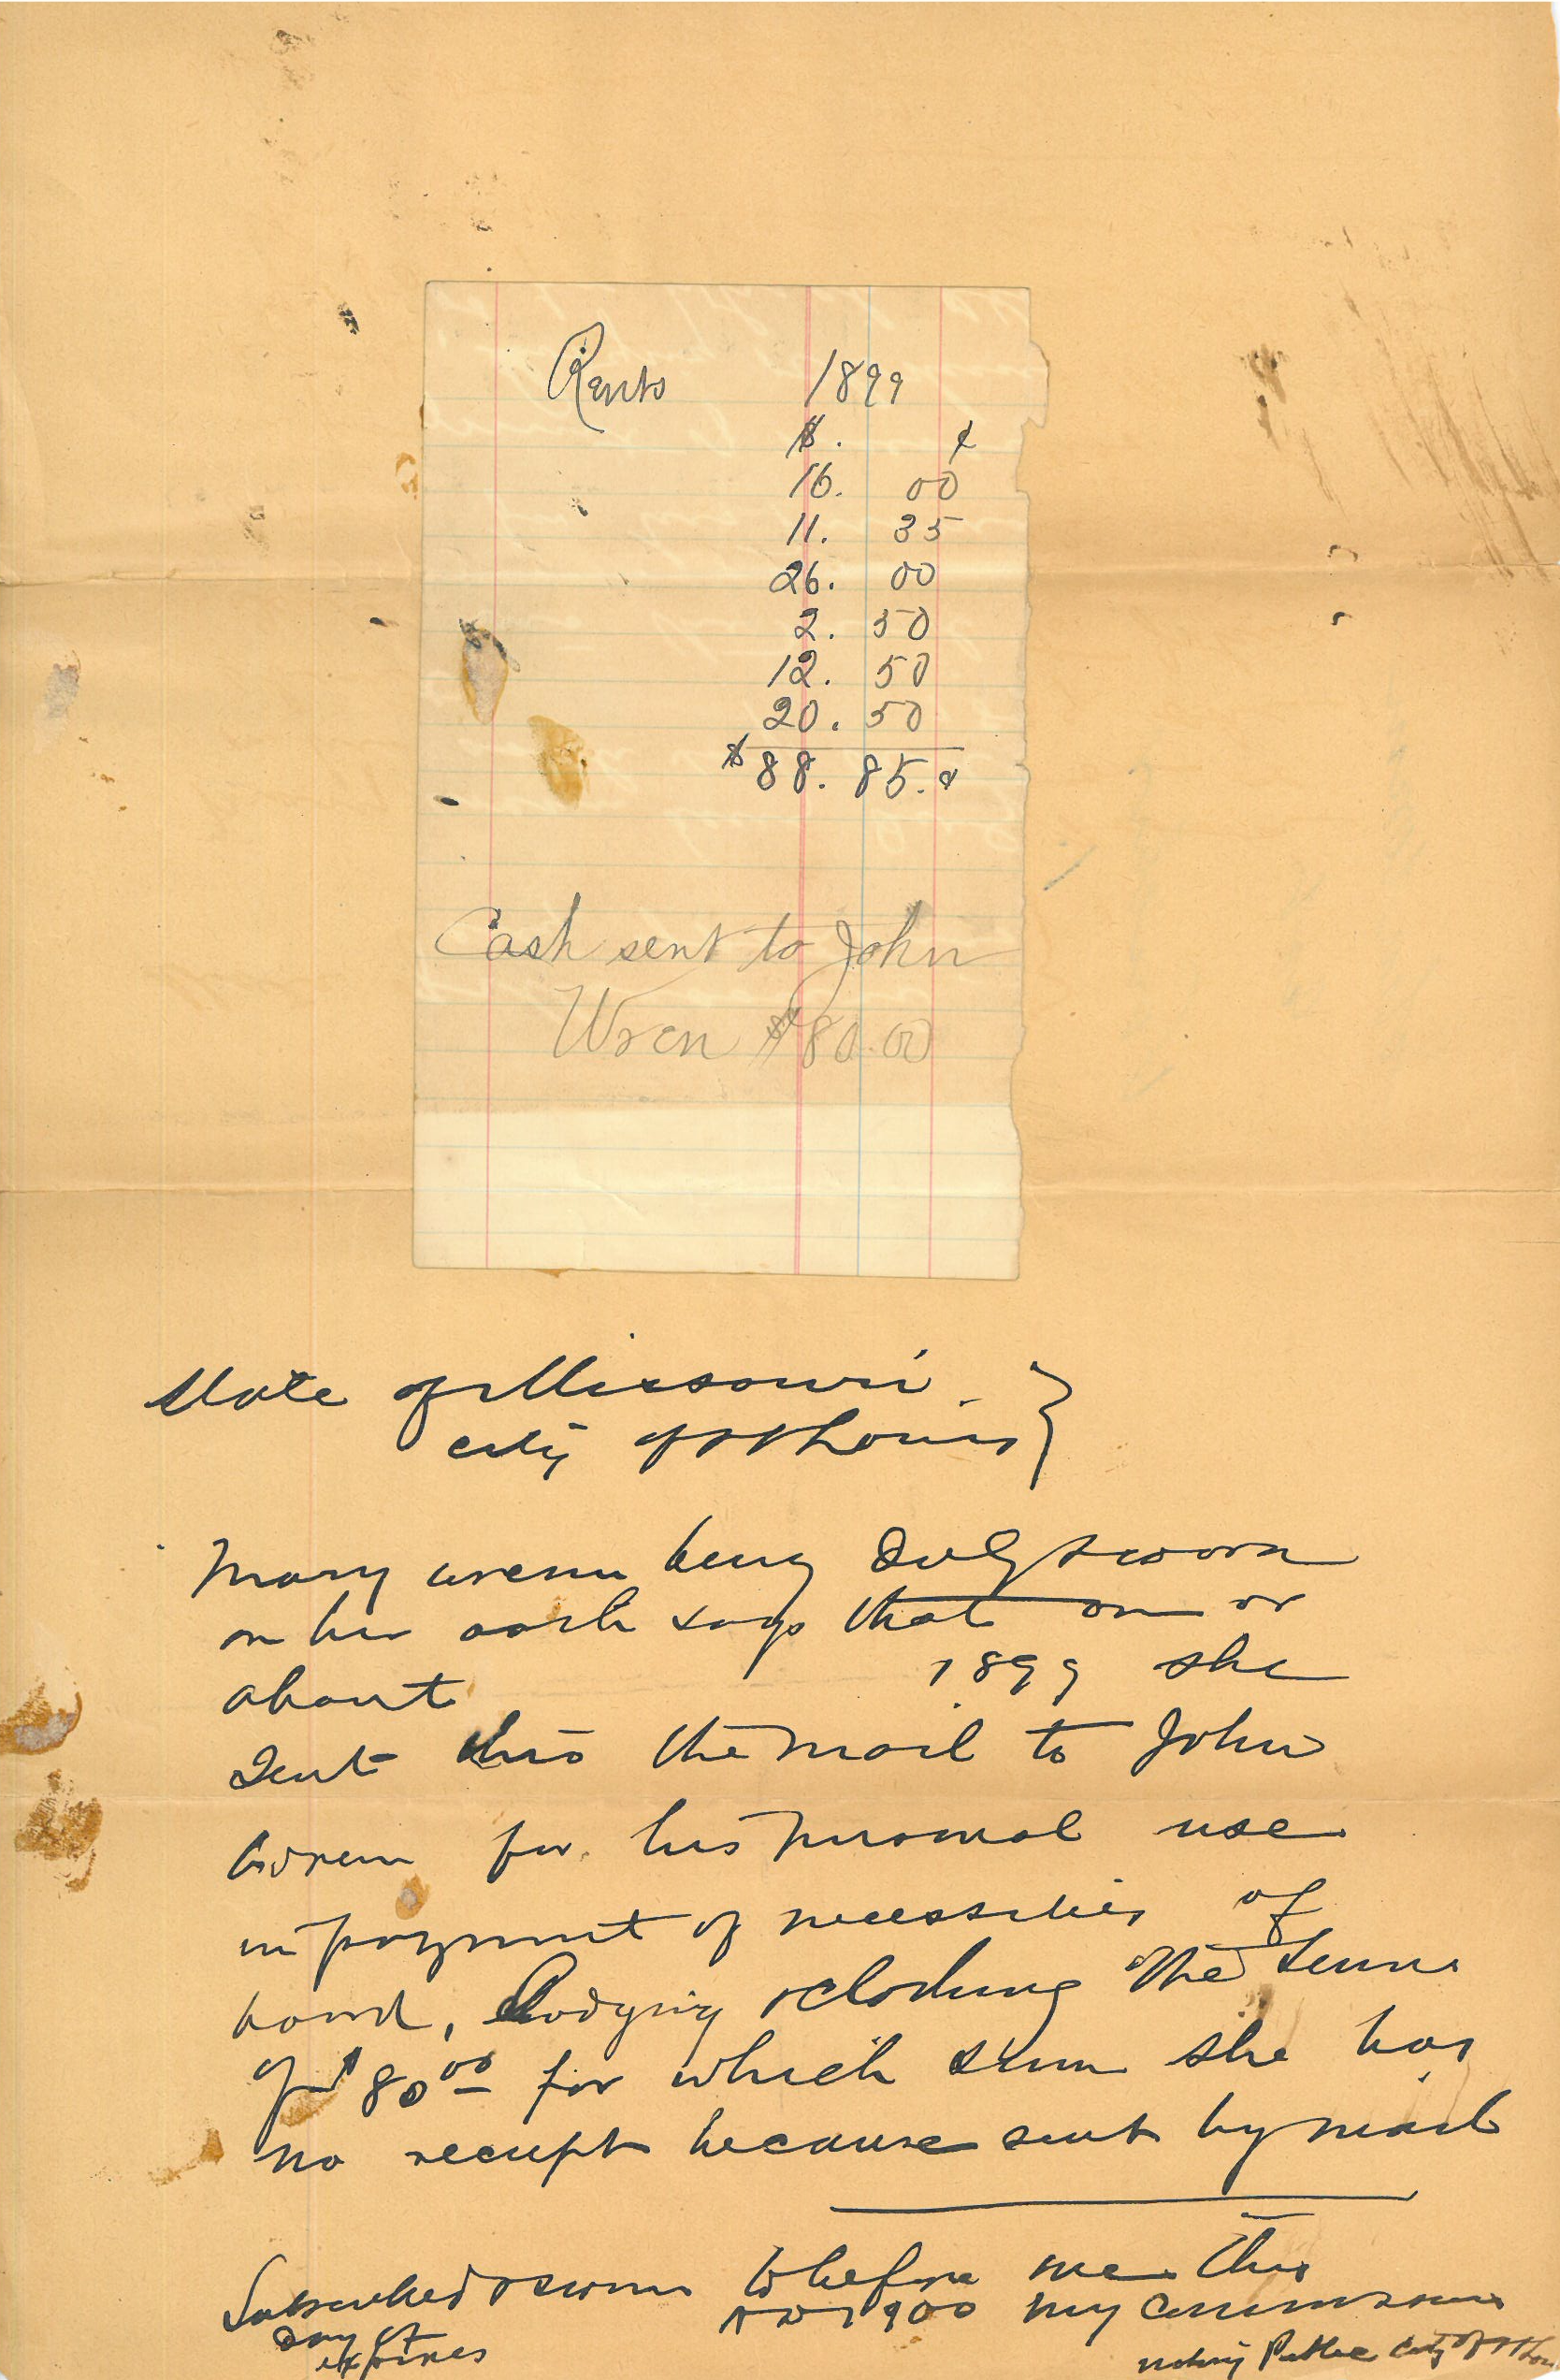 Rents 1899
$. ¢
16. 00
11. 35
26. 00
2. 50
12. 50
20. 50
$88. 85.¢
Cash sent to John
Wren $80.00
State of Missouri }
city of St Louis }
Mary wrenn being duly sworn
on her oath says that on or
about 1899 she
sent thro the mail to John
wrenn for his personal use
in payment of necessities of
board, lodging & clothing the sum
of $80 00 for which sum she has
no receipt because sent by mail
Subscribed & sworn to before me this
day of AD 1900 my commission
expires
notary Public City of St Louis